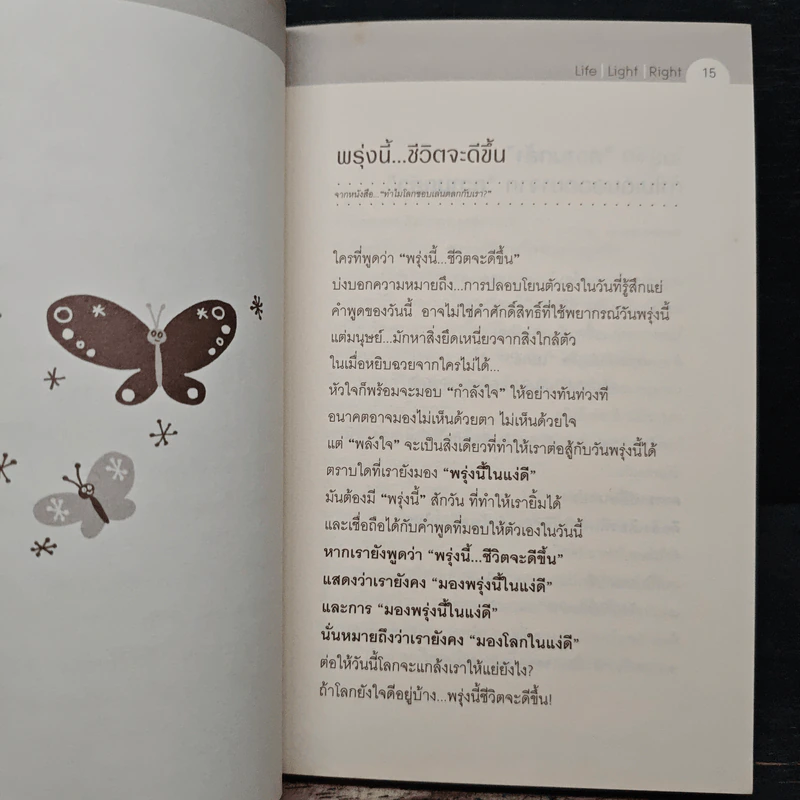 Life | Light | Right 15
พรุ่งนี้...ชีวิตจะดีขึ้น
จากหนังสือ..."ทำไมโลกชอบเล่นตลกกับเรา?"
ใครที่พูดว่า "พรุ่งนี้...ชีวิตจะดีขึ้น"
บ่งบอกความหมายถึง...การปลอบโยนตัวเองในวันที่รู้สึกแย่
คำพูดของวันนี้ อาจไม่ใช่คำศักดิ์สิทธิ์ที่ใช้พยากรณ์วันพรุ่งนี้
แต่มนุษย์...มักหาสิ่งยึดเหนี่ยวจากสิ่งใกล้ตัว
ในเมื่อหยิบฉวยจากใครไม่ได้...
หัวใจก็พร้อมจะมอบ "กำลังใจ" ให้อย่างทันท่วงที
อนาคตอาจมองไม่เห็นด้วยตา ไม่เห็นด้วยใจ
แต่ "พลังใจ" จะเป็นสิ่งเดียวที่ทำให้เราต่อสู้กับวันพรุ่งนี้ได้
ตราบใดที่เรายังมอง "พรุ่งนี้ในแง่ดี"
มันต้องมี "พรุ่งนี้" สักวัน ที่ทำให้เรายิ้มได้
และเชื่อถือได้กับคำพูดที่มอบให้ตัวเองในวันนี้
หากเรายังพูดว่า "พรุ่งนี้...ชีวิตจะดีขึ้น"
แสดงว่าเรายังคง "มองพรุ่งนี้ในแง่ดี"
และการ "มองพรุ่งนี้ในแง่ดี"
นั่นหมายถึงว่าเรายังคง "มองโลกในแง่ดี"
ต่อให้วันนี้โลกจะแกล้งเราให้แย่ยังไง?
ถ้าโลกยังใจดีอยู่บ้าง...พรุ่งนี้ชีวิตจะดีขึ้น!